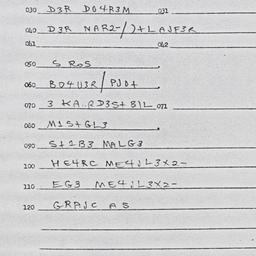 030 D3R DO4R3M 031
040 D3R NAR2-/)+LAJF3R
041 042
050 S RoS
060 BO4U3R/PJO+
070 3 KA..RD3S+B)L 071
080 M1S+GL3
090 S+1B3 MALG3
100 HE4RC ME4JL3X2-
110 EG3 ME4JL3X2-
120 GRAJC A S